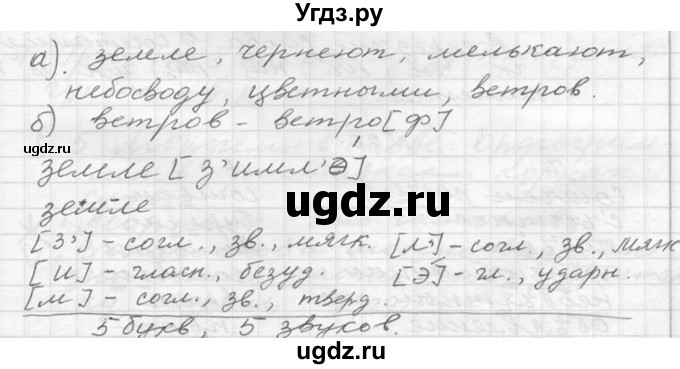 Угдз.ру
а). земле, чернеют, мелькают,
небосводу, цветными, ветров.
б) ветров - ветро[ф]
ugdz.ru
земле [з'имл'э́]
ugdz.ru
земле
[з'] - согл., зв., мягк. [л'] - согл., зв., мягк
[и] - гласн., безуд. [э́] - гл., ударн.
[м] - согл., зв., тверд.
5 букв, 5 звуков.
ugdz.ru
ugdz.ru